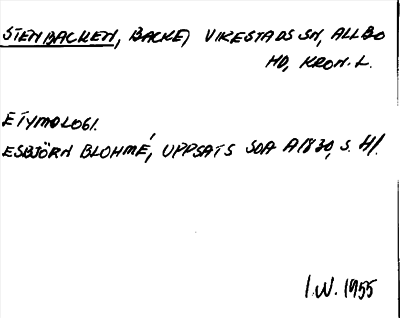 STENBACKEN, BACKE, VIRESTADS SN, ALLBO
HD, KRON. L.
ETYMOLOGI.
ESBJÖRN BLOHMÉ, UPPSATS SOA A1830, S. 41.
I.W. 1955